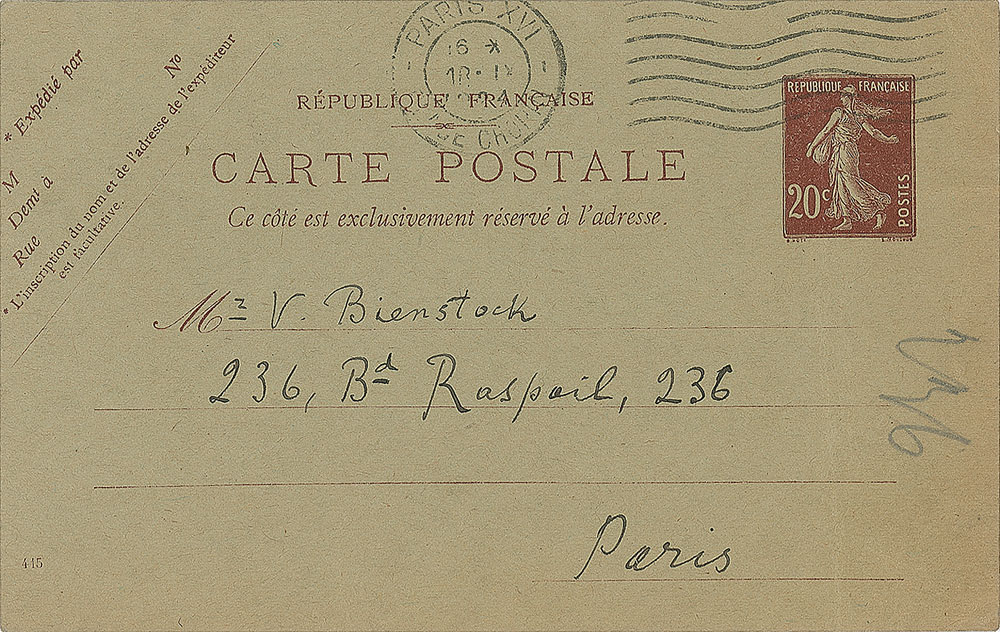 PARIS XVI
16 *
18 · IX
RÉPUBLIQUE FRANÇAISE
CARTE POSTALE
Ce côté est exclusivement réservé à l'adresse.
* Expédié par
M
Demt à
Rue Nº
* L'inscription du nom et de l'adresse de l'expéditeur
est facultative.
RÉPUBLIQUE FRANÇAISE
20c
POSTES
Mr V. Bienstock
236, Bd Raspail, 236
Paris
445